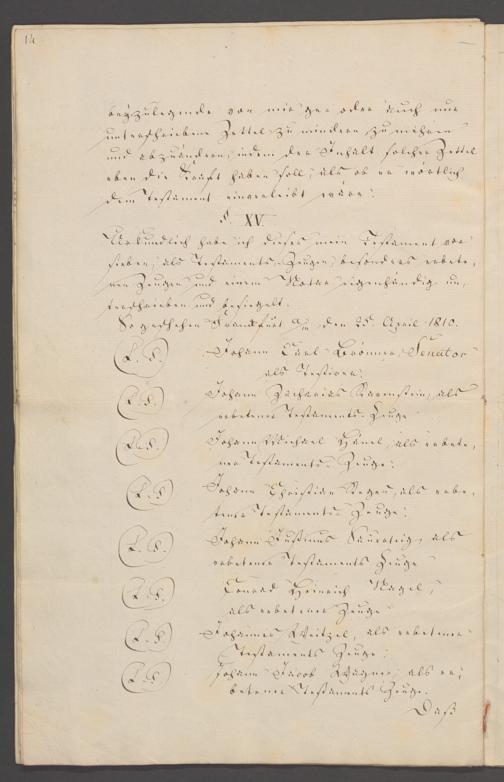 14
beyzulegende von mir ge oder auch nur
unterschriebene Zettel zu mindern zu mehren
und abzuändern, indem der Inhalt solcher Zettel
eben die Kraft haben soll, als ob er wörtlich
dem Testament einverleibt wäre.
§ XV.
Urkundlich habe ich dieses mein Testament vor
sieben, als Testaments-Zeugen, besonders erbete,
nen Zeugen und einem Notar eigenhändig un,
terschrieben und besiegelt.
So geschehen Frankfurt a/m den 25t April 1810.
(L. S.) Johann Carl Brönner, Senator
als Testirer.
(L. S.) Johann Zacharias, als
erbetener Testaments-Zeuge
(L. S.) Johann Michael Hänel, als erbete,
ner Testaments-Zeuge.
(L. S.) Johann Christian, als erbe,
tener Testaments-Zeuge.
(L. S.) Johann Justinus, als
erbetener Testaments Zeuge
(L. S.) Conrad Heinrich Nagel,
als erbetener Zeuge
(L. S.) Johannes Weitzel, als erbetener
Testaments Zeuge.
(L. S.) Johann Jacob Wagner, als er,
betener Testaments Zeuge.
Daß